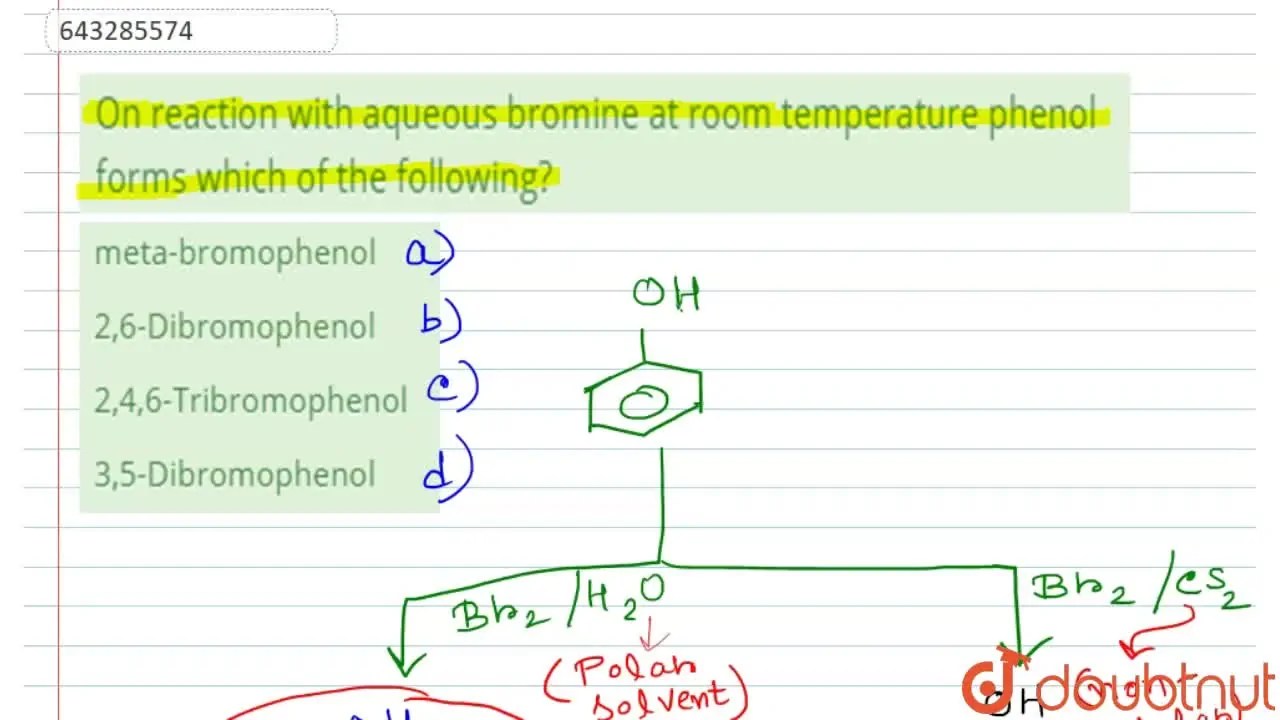 643285574
On reaction with aqueous bromine at room temperature phenol
forms which of the following?
meta-bromophenol a)
2,6-Dibromophenol b)
2,4,6-Tribromophenol c)
3,5-Dibromophenol d)
OH
Br2 /H2O
Br2 /CS2
(Polar
solvent)
OH
doubtnut